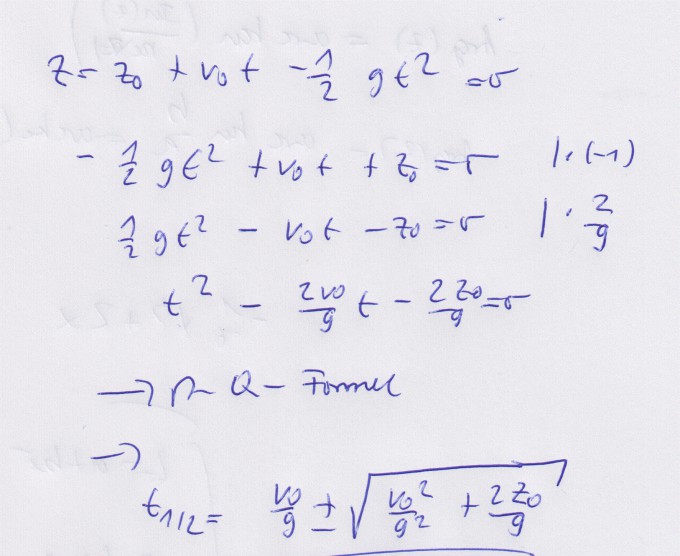 z = z₀ + v₀ t - 1/2 g t² = 0
- 1/2 g t² + v₀ t + z₀ = 0 | · (-1)
1/2 g t² - v₀ t - z₀ = 0 | · 2/g
t² - 2v₀/g t - 2z₀/g = 0
→ P-Q-Formel
→
t₁/₂ = v₀/g ± √(v₀²/g² + 2z₀/g)